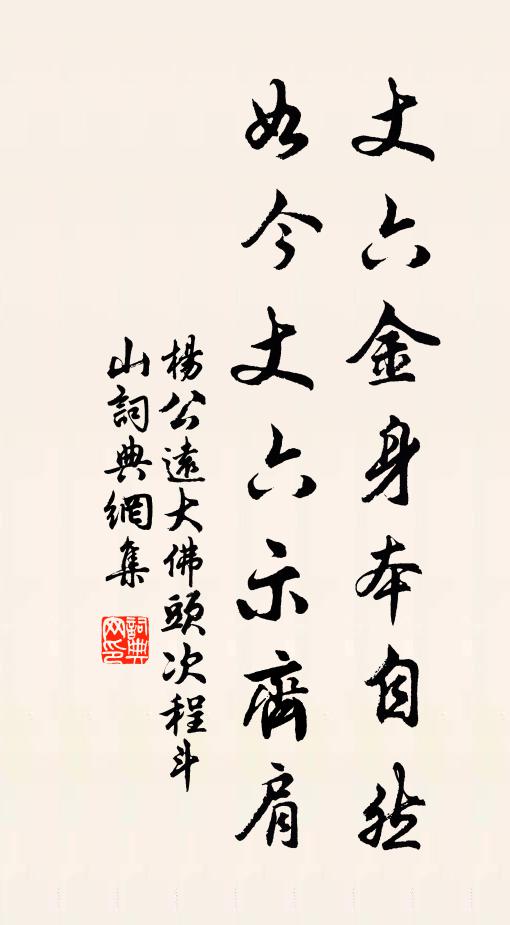 丈六金身本自然
如今丈六示齊肩
楊公遠大佛頭次程斗
山詞典網集
詞典网印